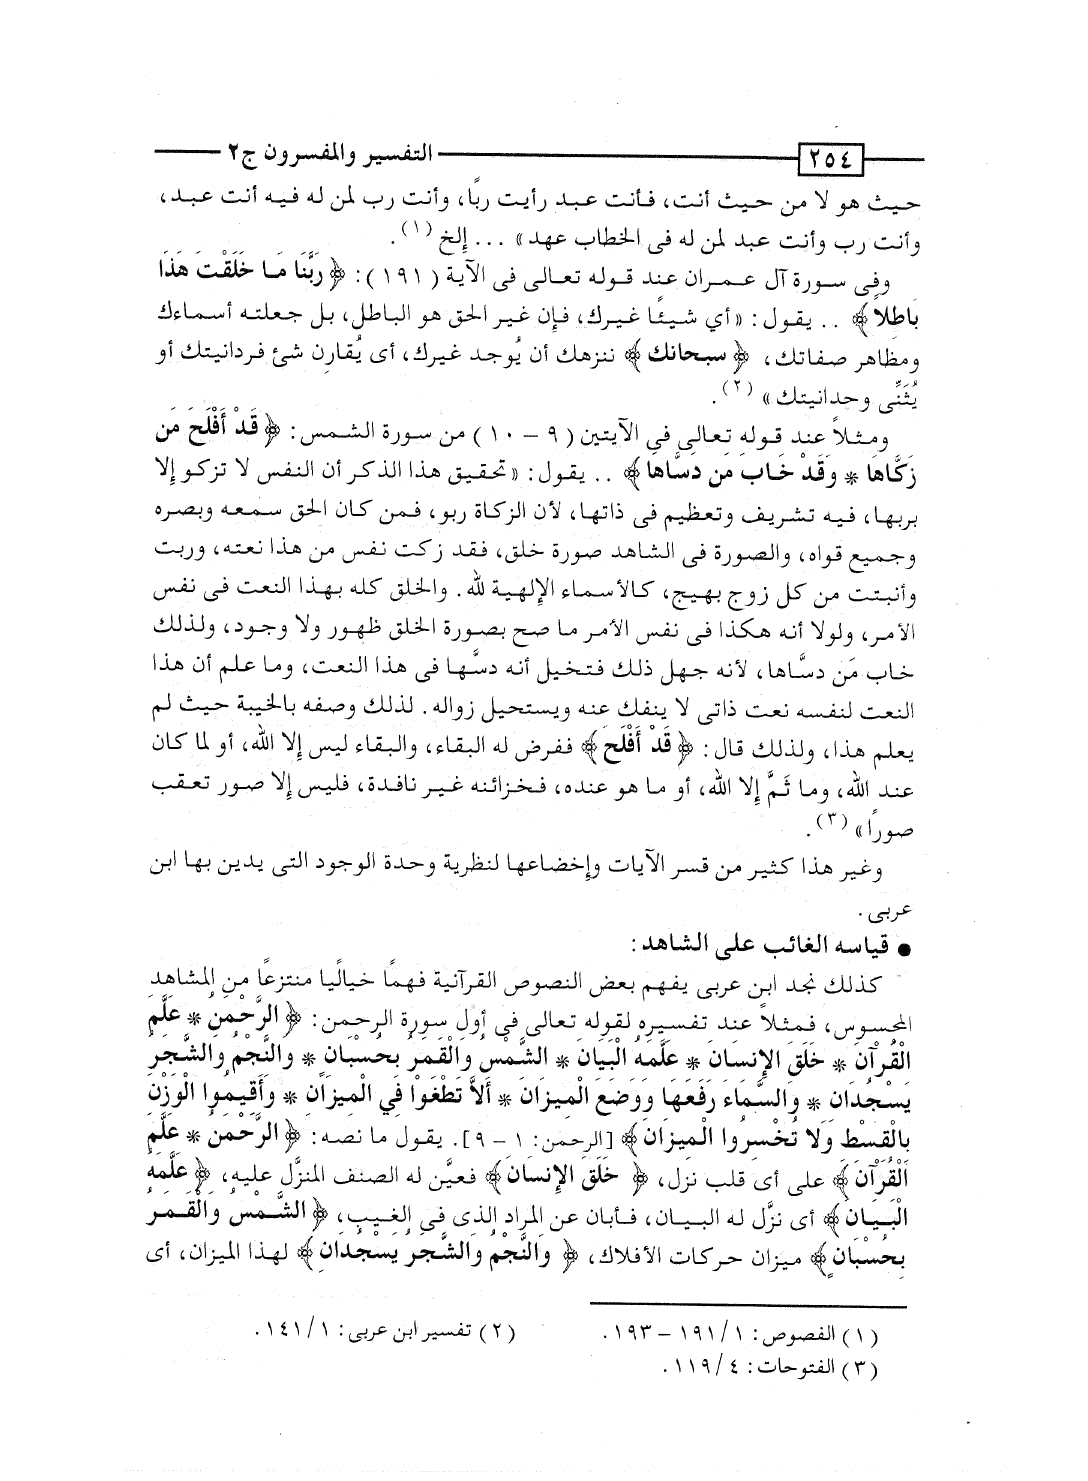 ٢٥٤ التفسير والمفسرون ج٢
حيث هو لا من حيث أنت، فأنت عبد رأيت ربًا، وأنت رب لمن له فيه أنت عبد،
وأنت رب وأنت عبد لمن له فى الخطاب عهد» ... إلخ (١).
وفى سورة آل عمران عند قوله تعالى فى الآية (١٩١): ﴿ رَبَّنَا مَا خَلَقْتَ هَذَا
بَاطِلاً﴾ .. يقول: «أي شيئًا غيرك، فإن غير الحق هو الباطل، بل جعلته أسماءك
ومظاهر صفاتك، ﴿ سبحانك﴾ ننزهك أن يُوجد غيرك، أى يُقارن شئ فردانيتك أو
يُثَنِّى وحدانيتك» (٢).
ومثلاً عند قوله تعالى فى الآيتين (٩ – ١٠) من سورة الشمس: ﴿ قَدْ أَفْلَحَ مَن
زَكَّاهَا * وَقَدْ خَابَ مَن دسَّاهَا﴾ .. يقول: «تحقيق هذا الذكر أن النفس لا تزكو إلا
بربها، فيه تشريف وتعظيم فى ذاتها، لأن الزكاة ربو، فمن كان الحق سمعه وبصره
وجميع قواه، والصورة فى الشاهد صورة خلق، فقد زكت نفس من هذا نعته، وربت
وأنبتت من كل زوج بهيج، كالأسماء الإلهية لله. والخلق كله بهذا النعت فى نفس
الأمر، ولولا أنه هكذا فى نفس الأمر ما صح بصورة الخلق ظهور ولا وجود، ولذلك
خاب مَن دسَّاها، لأنه جهل ذلك فتخيل أنه دسَّها فى هذا النعت، وما علم أن هذا
النعت لنفسه نعت ذاتى لا ينفك عنه ويستحيل زواله. لذلك وصفه بالخيبة حيث لم
يعلم هذا، ولذلك قال: ﴿ قَدْ أَفْلَحَ﴾ ففرض له البقاء، والبقاء ليس إلا الله، أو لما كان
عند الله، وما ثَمَّ إلا الله، أو ما هو عنده، فخزائنه غير نافدة، فليس إلا صور تعقب
صورًا» (٣).
وغير هذا كثير من قسر الآيات وإخضاعها لنظرية وحدة الوجود التى يدين بها ابن
عربى.
• قياسه الغائب على الشاهد:
كذلك نجد ابن عربى يفهم بعض النصوص القرآنية فهمًا خياليًا منتزعًا من المشاهد
المحسوس، فمثلاً عند تفسيره لقوله تعالى فى أول سورة الرحمن: ﴿ الرَّحْمَن * عَلَّمَ
الْقُرْآنَ * خَلَقَ الإِنسَانَ * عَلَّمَهُ الْبَيَانَ * الشَّمْسُ وَالْقَمَرُ بِحُسْبَانٍ * وَالنَّجْمُ وَالشَّجَرُ
يَسْجُدَانِ * وَالسَّمَاءَ رَفَعَهَا وَوَضَعَ الْمِيزَانَ * أَلاَّ تَطْغَوْا فِي الْمِيزَانِ * وَأَقِيمُوا الْوَزْنَ
بِالْقِسْطِ وَلَا تُخْسِرُوا الْمِيزَانَ﴾ [الرحمن: ١ – ٩]. يقول ما نصه: ﴿ الرَّحْمَن * عَلَّمَ
الْقُرْآنَ﴾ على أى قلب نزل، ﴿ خَلَقَ الإِنسَانَ﴾ فعيَّن له الصنف المنزَّل عليه، ﴿ عَلَّمَهُ
الْبَيَانَ﴾ أى نزَّل له البيان، فأبان عن المراد الذى فى الغيب، ﴿ الشَّمْسُ وَالْقَمَرُ
بِحُسْبَانٍ﴾ ميزان حركات الأفلاك، ﴿ وَالنَّجْمُ وَالشَّجَرُ يَسْجُدَانِ﴾ لهذا الميزان، أى
(١) الفصوص: ١/ ١٩١ – ١٩٣. (٢) تفسير ابن عربى: ١/ ١٤١.
(٣) الفتوحات: ٤/ ١١٩.